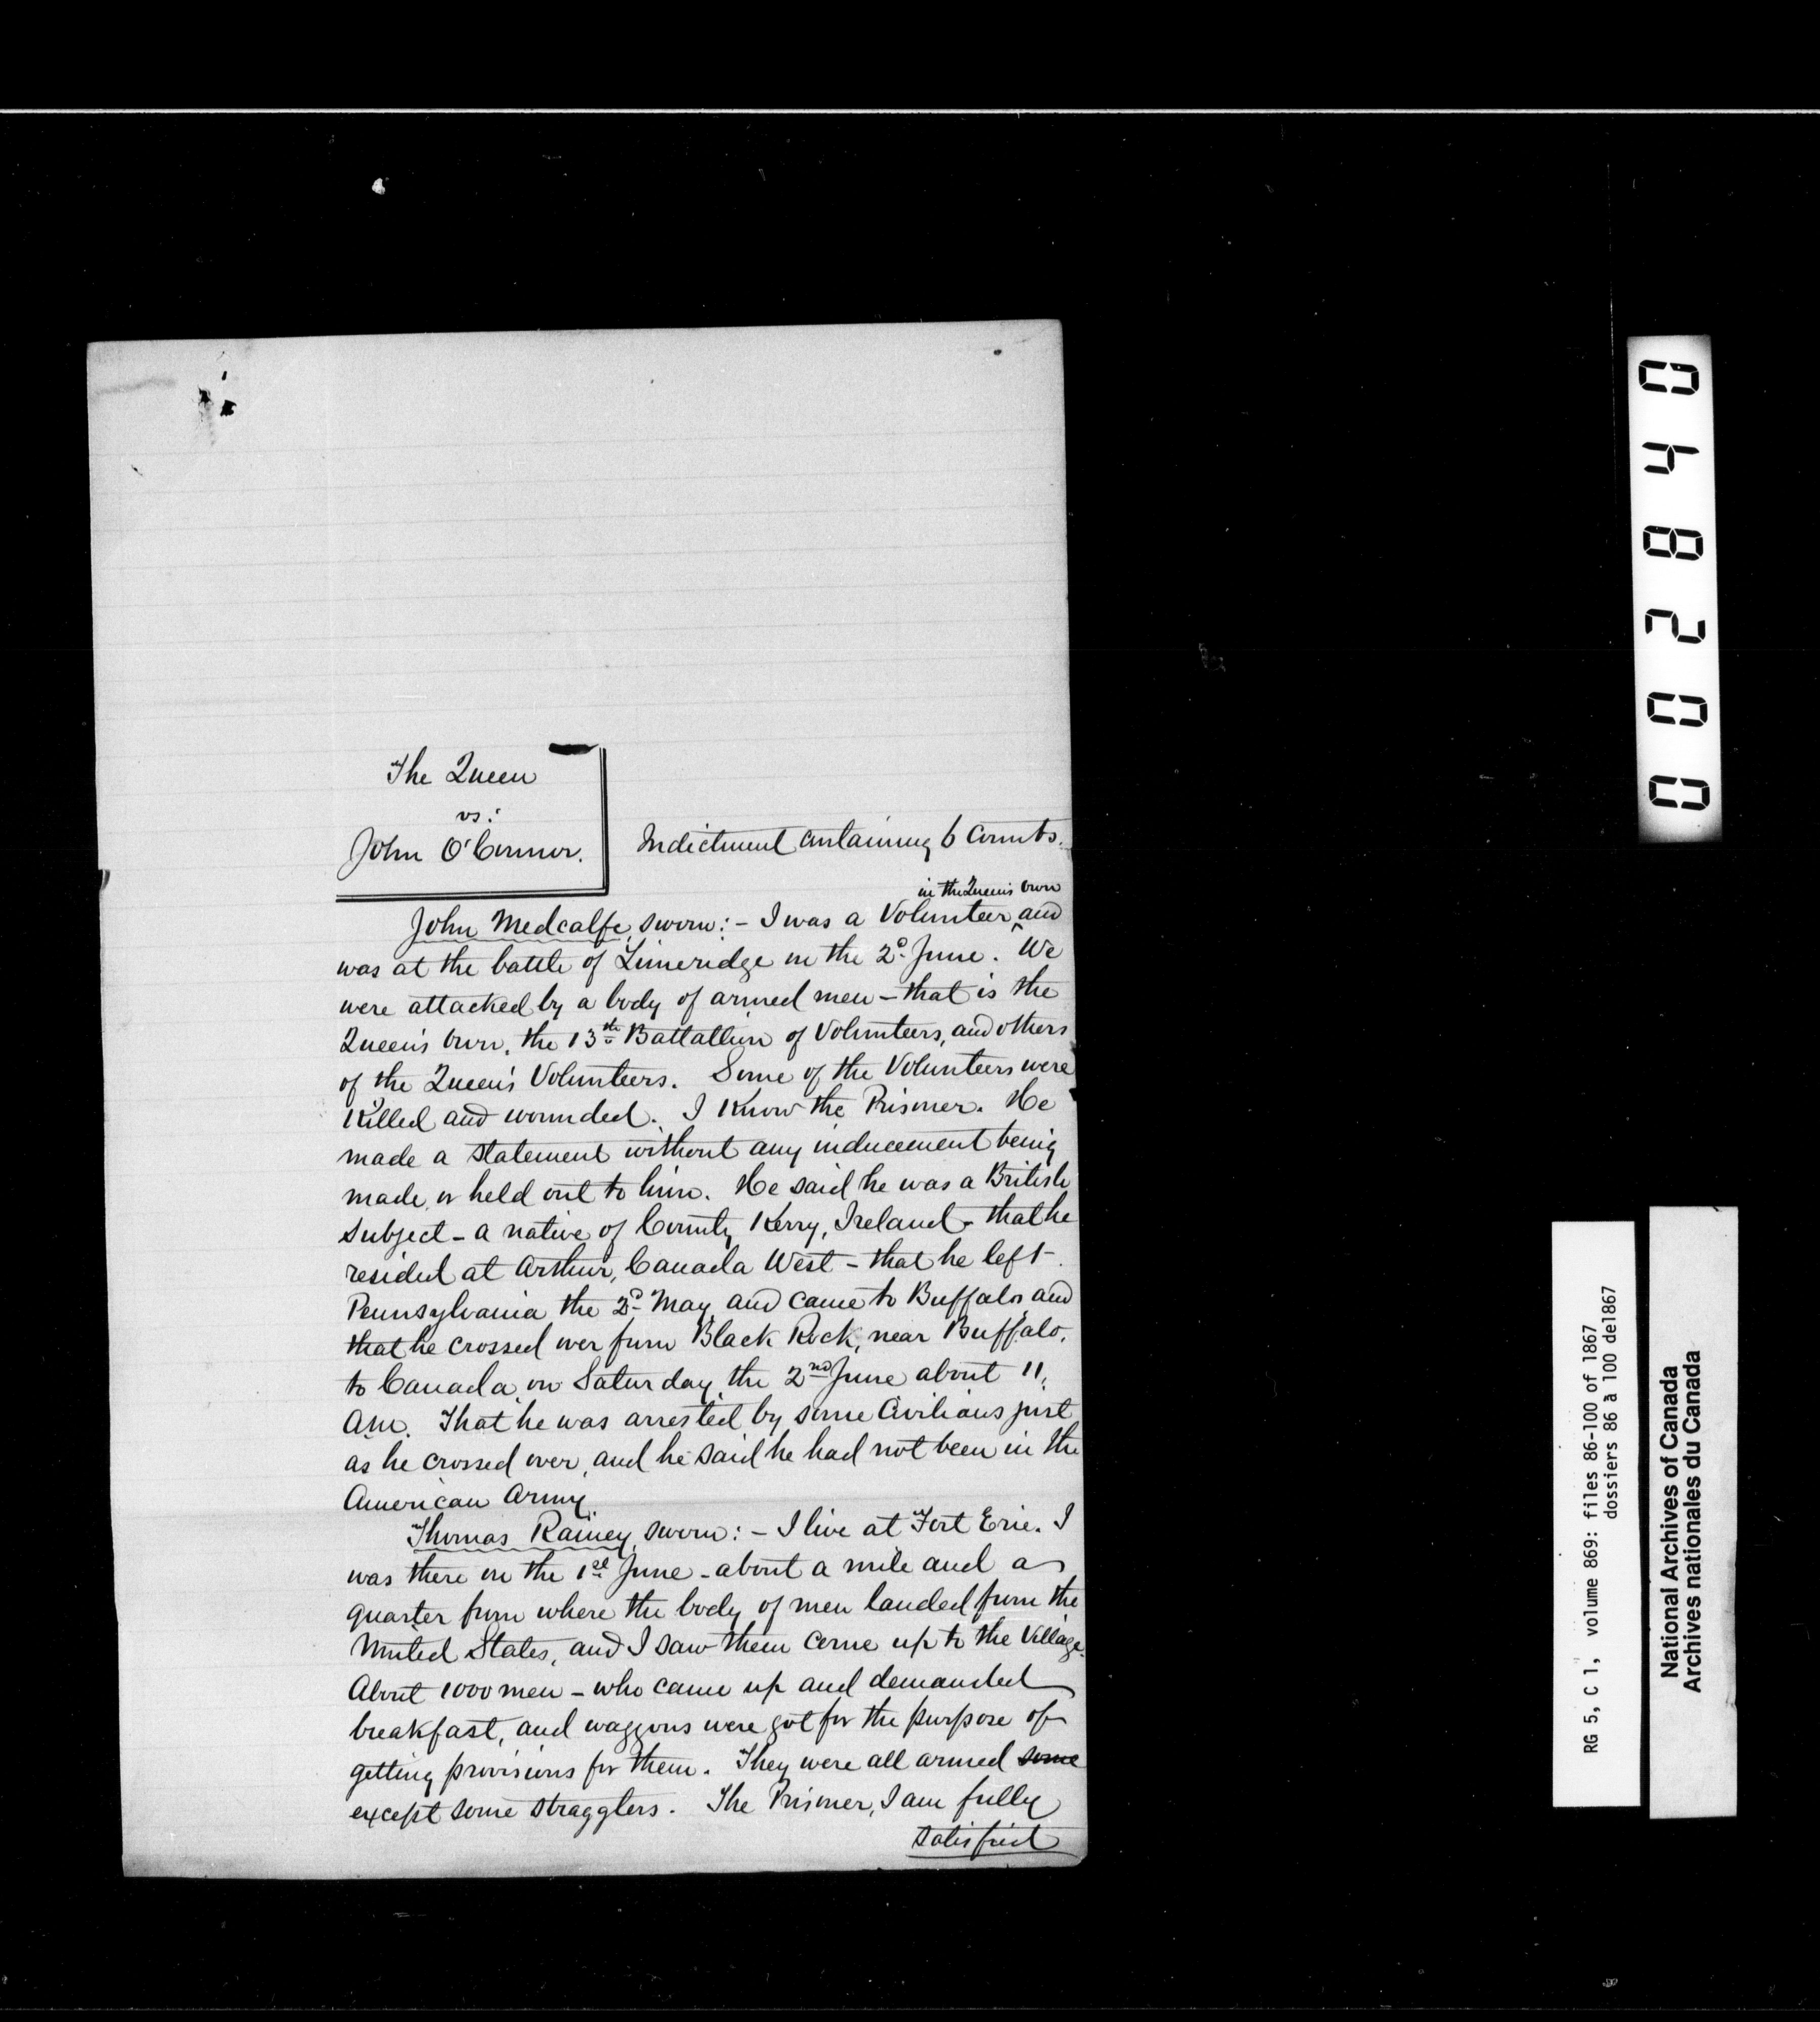 The Queen
vs:
John O'Connor.
Indictment containing 6 Counts.
in the Queen's Own
John Medcalfe, sworn:- I was a Volunteer ^ and
was at the battle of Limeridge on the 2d. June. We
were attacked by a body of armed men - that is the
Queen's Own, the 13th Battallion of Volunteers, and others
of the Queen's Volunteers. Some of the Volunteers were
Killed and wounded. I Know the Prisoner. He
made a statement without any inducement being
made, or held out to him. He said he was a British
subject - a native of County Kerry, Ireland - that he
resided at Arthur, Canada West - that he left
Pennsylvania the 2d. May, and came to Buffalo, and
that he crossed over from Black Rock, near Buffalo,
to Canada, on Saturday, the 2nd June about 11,
AM. That he was arrested by some Civilians just
as he crossed over, and he said he had not been in the
American Army.
Thomas Rainey, sworn:- I live at Fort Erie. I
was there on the 1st June - about a mile and a
quarter from where the body of men landed from the
United States, and I saw them come up to the Village.
About 1000 men - who came up and demanded
breakfast, and waggons were got for the purpose of
getting provisions for them. They were all armed some
except some stragglers. The Prisoner, I am fully
satisfied
004840
RG 5, C 1, volume 869: files 86-100 of 1867
dossiers 86 à 100 de1867
National Archives of Canada
Archives nationales du Canada